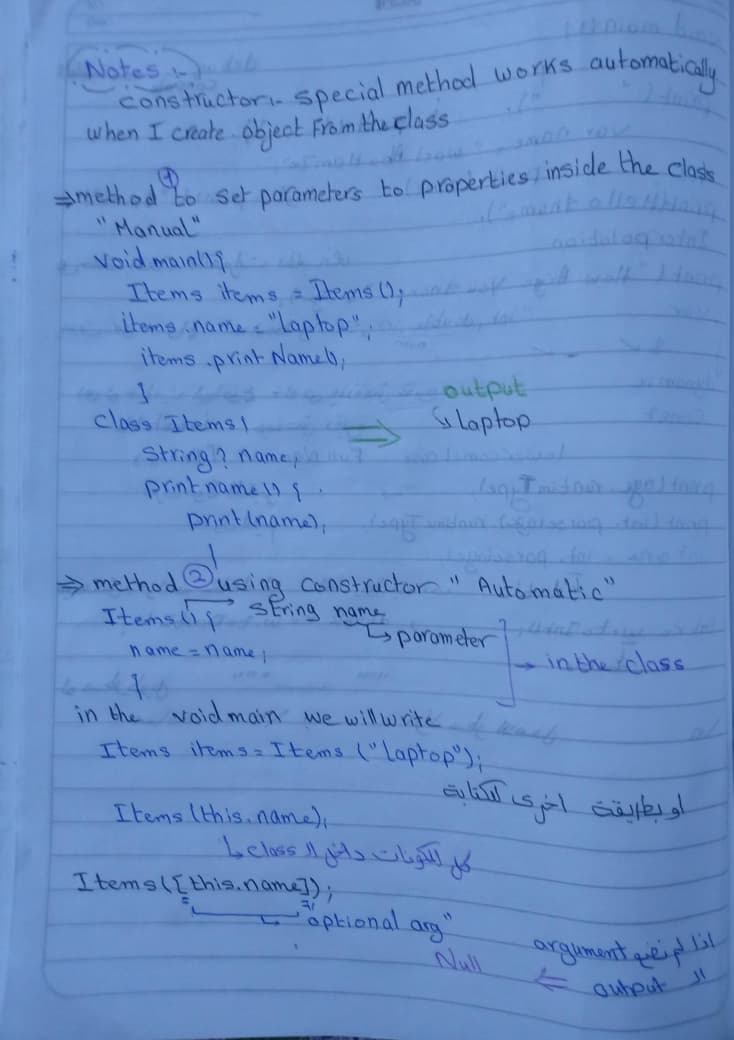 Notes :-
constructor :- special method works automatically
when I create object From the class
⇒ method ① to set parameters to properties inside the class
"Manual"
void main(){
Items items = Items();
items.name = "Laptop";
items.print Name();
}
output
class Items{
⇒ ↳ Laptop
String? name;
printname() {
print(name);
}
⇒ method ② using constructor "Automatic"
Items() { String name
↳ parameter
name = name;
→ in the class
}
in the void main we will write
Items items = Items ("Laptop");
او بطريقة اخرى للكتابة
Items (this.name);
↳ class كل المكونات داخل الـ
Items([this.name]);
"optional arg"
اذا لم نضع argument
الـ output ⇐ Null